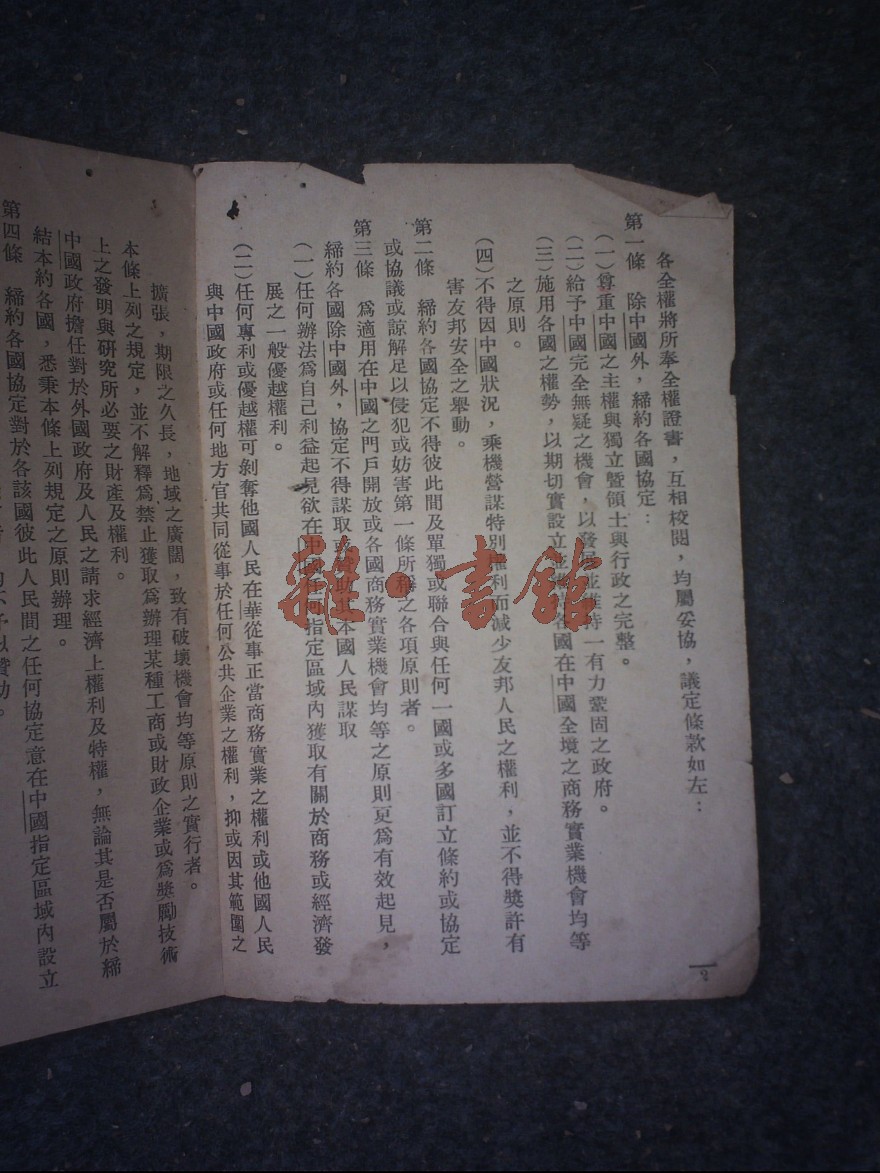 各全權將所奉全權證書，互相校閱，均屬妥協，議定條款如左：
第一條　除中國外，締約各國協定：
(一)尊重中國之主權與獨立暨領土與行政之完整。
(二)給予中國完全無疑之機會，以發展並維持一有力鞏固之政府。
(三)施用各國之權勢，以期切實設立並各國在中國全境之商務實業機會均等
之原則。
(四)不得因中國狀況，乘機營謀特別權利而減少友邦人民之權利，並不得獎許有
害友邦安全之舉動。
第二條　締約各國協定不得彼此間及單獨或聯合與任何一國或多國訂立條約或協定
或協議或諒解足以侵犯或妨害第一條所稱之各項原則者。
第三條　爲適用在中國之門戶開放或各國商務實業機會均等之原則更爲有效起見，
締約各國除中國外，協定不得謀取或贊助其本國人民謀取
(一)任何辦法爲自己利益起見欲在中國任何指定區域內獲取有關於商務或經濟發
展之一般優越權利。
(二)任何專利或優越權可剝奪他國人民在華從事正當商務實業之權利或他國人民
與中國政府或任何地方官共同從事於任何公共企業之權利，抑或因其範圍之
擴張，期限之久長，地域之廣闊，致有破壞機會均等原則之實行者。
本條上列之規定，並不解釋爲禁止獲取爲辦理某種工商或財政企業或爲獎勵技術
上之發明與研究所必要之財產及權利。
中國政府擔任對於外國政府及人民之請求經濟上權利及特權，無論其是否屬於締
結本約各國，悉秉本條上列規定之原則辦理。
第四條　締約各國協定對於各該國彼此人民間之任何協定意在中國指定區域內設立
不予以贊助。
2
雜·書館